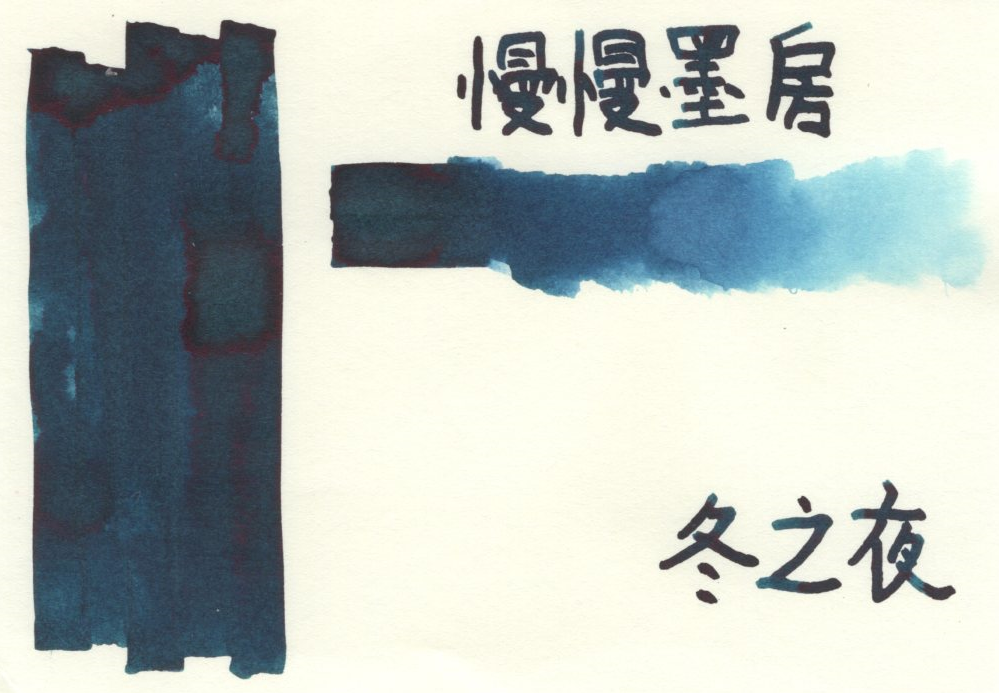 慢慢墨房
冬之夜